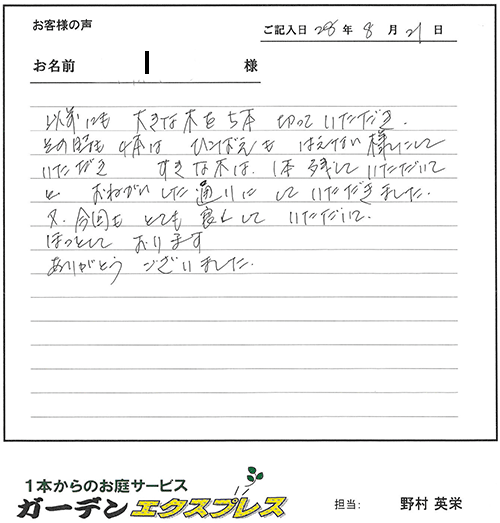 お客様の声
ご記入日 28 年 8 月 21 日
お名前 様
以前にも 大きな木を 5本 切って いただだき.
その時も 4本は ひこばえも はえない 様にして
いただき すきな木は、1本 残して いただいて
と おねがいした通りに して いただきました.
又、今回も とても 良くして いただいて.
ほっとして おります
ありがとう ございました.
1本からのお庭サービス
ガーデンエクスプレス
担当: 野村 英栄